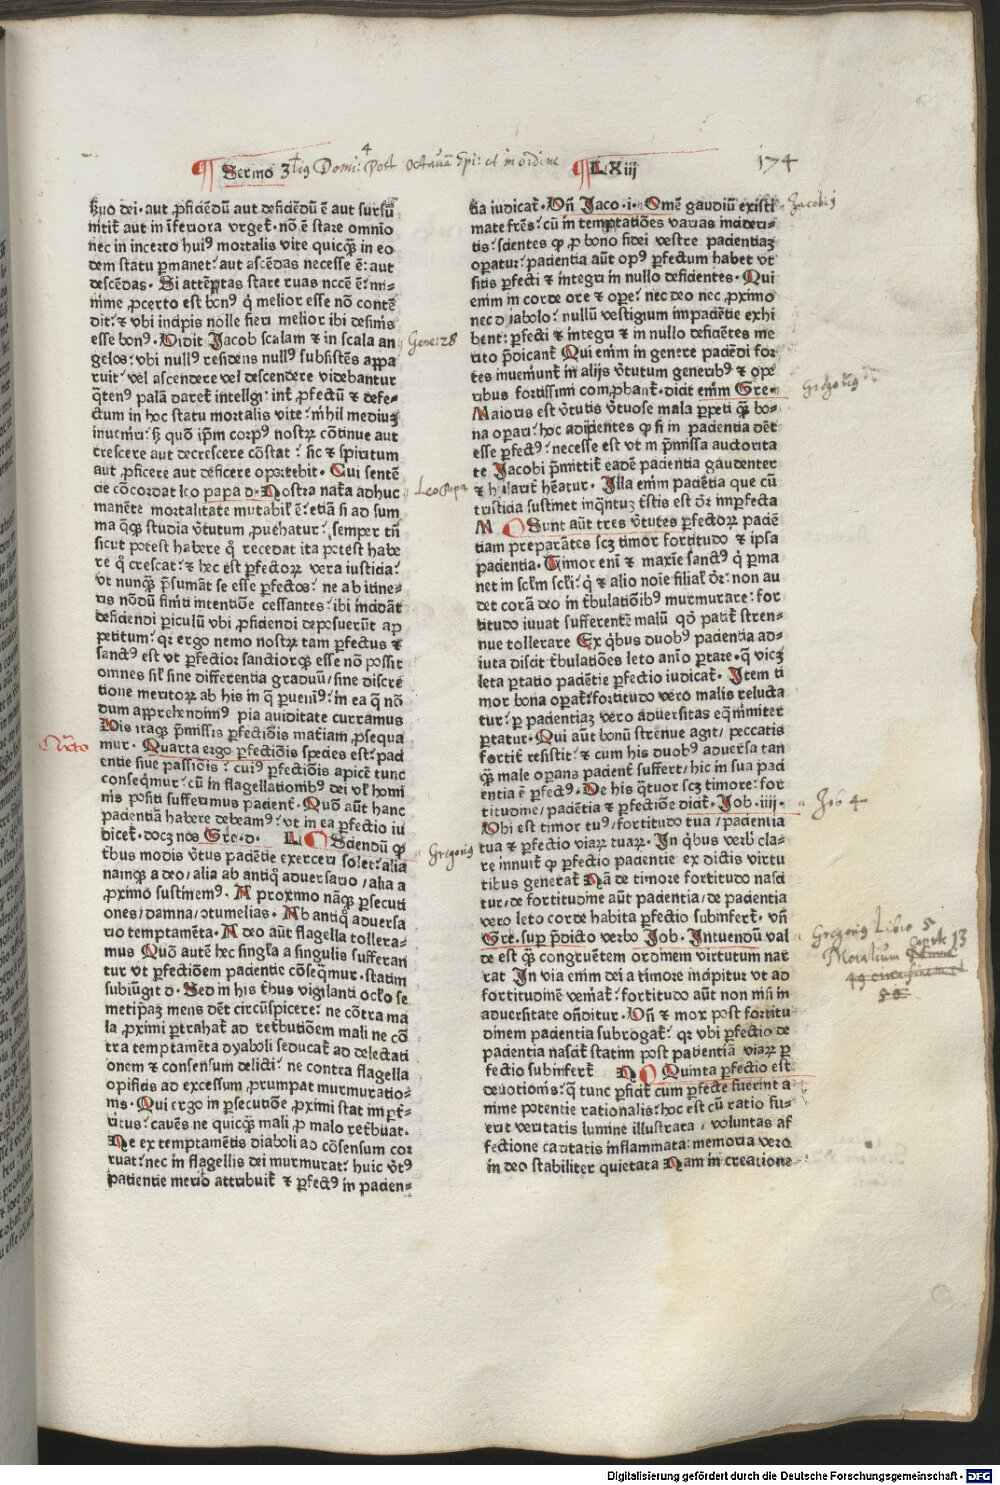 Sermo 3tius Domi: 4 Post octauā Epi: et in ordine LXiij 174
suo dei· aut ꝓficiēdū aut deficiēdū ē aut sursū
nitit̄ aut in īferiora vrget̄· nō ē stare omnio
nec in incerto huiꝰ mortalis vite quicꝙ̄ in eo
dem statu ꝑmanet: aut ascēdas necesse ē: aut
descēdas· Si attēptas stare ruas nccē ē: mi⸗
nime ꝓcerto est bonꝰ q̄ melior esse nō contē
dit: ⁊ vbi incipis nolle fieri melior ibi desinis
esse bonꝰ· Vidit Jacob scalam ⁊ in scala an
gelos: vbi nullꝰ residens nullꝰ subsistēs appa
ruit: vel ascendere vel descendere videbantur
q̄tenꝰ palā daret̄ intelligi: int̄ ꝓfectū ⁊ defe⸗
ctum in hoc statu mortalis vite: nihil mediuꝫ
inueniri: sꝫ quō ip̄m corpꝰ nostrꝝ cōtinue aut
crescere aut decrescere cōstat: sic ⁊ spiritum
aut ꝓficere aut deficere oportebit· Cui sentē
cie cōcordat leo papa d· Nostra nat̄a adhuc
manēte mortalitate mutabil̄ ē: etiā si ad sum
ma q̄ꝙ studia v̄tutum ꝓuehatur: semper tn̄
sicut potest habere q̄ recedat ita potest habe
re q̄ crescat: ⁊ hec est ꝑfectoꝝ vera iusticia:
vt nunꝙ̄ p̄sumāt se esse ꝑfectos: ne ab itine⸗
ris nōdū finiti intentiōe cessantes: ibi incidāt
deficiendi ꝑiculū vbi ꝓficiendi deposuerūt ap
petitum: qꝛ ergo nemo nostrꝝ tam ꝑfectus ⁊
sanctꝰ est vt ꝑfectior sanctiorꝙ esse nō possit
omnes sil̄ sine differentia graduū/sine discre
tione meritoꝝ ab his in q̄ ꝑuenimꝰ: in ea q̄ nō
dum apprehendimꝰ pia auiditate curramus
His itaꝙ p̄missis ꝑfectiōis mat̄iam ꝓsequa
mur· Quarta ergo ꝑfectiōis species est: paci
entie siue passiōis: cuiꝰ ꝑfectiōis apicē tunc
conseq̄mur: cū in flagellationibꝰ dei vꝉ homi
nis positi sufferimus pacient̄· Quō aūt hanc
pacientiā habere debeamꝰ: vt in ea ꝑfectio iu
dicet̄· docꝫ nos Gre· d· L Sciendū ꝙ
tribus modis v̄tus paciētie exerceri solet: alia
namꝙ a deo/alia ab antiq̄ aduersario/alia a
ꝓximo sustinemꝰ· A proximo nāꝙ ꝑsecuti
ones/damna/ꝯtumelias· Ab antiq̄ aduersa
rio temptamēta· A deo aūt flagella tollera⸗
mus Quō autē hec singl̄a a singulis sufferan
tur vt ꝑfectiōem pacientie cōseq̄mur· statim
subiūgit d· Sed in his t̄bus vigilanti oc̄lo se
metip̄aꝫ mens dēt circūspicere: ne cōtra ma
la ꝓximi ꝑtrahat̄ ad ret̄butiōem mali ne cō
tra temptamēta dyaboli seducat̄ ad delectati
onem ⁊ consensum delicti: ne contra flagella
opificis ad excessum ꝓrumpat murmuratio⸗
nis· Qui ergo in ꝑsecutiōe ꝓximi stat impt̄⸗
ritus: cauēs ne quicꝙ mali ꝓ malo ret̄buat·
Ne ex temptamētis diaboli ad cōsensum cor
ruat: nec in flagellis dei murmurat: huic v̄tꝰ
patientie merito attribuit̄ ⁊ ꝑfectꝰ in pacien⸗
Gene: 28
Leo Papa
Quarto
Gregoriꝰ
tia iudicat̄· Vn̄ Jaco· i· Omē gaudiū existi
mate frēs: cū in temptatiōes varias incideri⸗
tis: scientes ꝙ ꝓ bono fidei vestre pacientiaꝫ
oꝑatur: patientia aūt opꝰ ꝑfectum habet vt
sitis ꝑfecti ⁊ integri in nullo deficientes· Qui
enim in corde ore ⁊ oꝑe: nec deo nec ꝓximo
nec diabolo: nullū vestigium impaciētie exhi
bent: ꝑfecti ⁊ integri ⁊ in nullo deficiētes me
rito p̄dicant̄ Qui enim in genere paciēdi for
tes inueniunt̄ in alijs v̄tutum generibꝰ ⁊ oꝑe
ribus fortissimi comꝓbant̄· dicit enim Gre·
Maioris est v̄tutis v̄tuose mala ꝑpeti ꝙ̄ bo⸗
na oꝑari: hoc adijcientes ꝙ si in pacientia dēt
esse ꝑfectꝰ: necesse est vt in p̄missa auctorita
te Jacobi p̄mittit̄ eadē pacientia gaudenter
⁊ hilarit̄ hēatur· Illa enim paciētia que cū
tristicia sustinet inq̄ntuꝫ t̄stis est dr̄ imꝑfecta
M Sunt aūt tres v̄tutes ꝑfectoꝝ paciē
tiam preparātes scꝫ timor fortitudo ⁊ ipsa
pacientia· Timor eni ⁊ maxīe sanctꝰ q̄ ꝑma
net in scl̄m scl̄i: q̄ ⁊ alio noīe filial̄ dr̄: non au
det corā deo in t̄bulatiōibꝰ murmurare: for
titudo iuuat sufferentē malū qd̄ patit̄ stren⸗
nue tollerare Ex q̄bus duobꝰ pacientia ad⸗
iuta discit t̄bulatiōes leto anīo ꝑtare· q̄ vicꝫ
leta ꝑtatio paciētie ꝑfectio iudicat̄· Item ti
mor bona oꝑat̄: fortitudo vero malis relucta
tur: ꝑ pacientiaꝫ vero aduersitas eq̄nimiter
ꝑtatur· Qui aūt bonū strēnue agit/peccatis
fortit̄ resistit: ⁊ cum his duobꝰ aduersa tan
ꝙ̄ male oꝑans pacient̄ suffert/hic in sua paci
entia ē ꝑfectꝰ· De his q̄tuor scꝫ timore: for
titudine/paciētia ⁊ ꝑfectiōe dicit̄· Job· iiij·
Vbi est timor tuꝰ/fortitudo tua/pacientia
tua ⁊ ꝑfectio viaꝝ tuaꝝ· In q̄bus verb̄ cla⸗
re innuit̄ ꝙ ꝑfectio pacientie ex dictis virtu
tibus generat̄ Nā de timore fortitudo nasci
tur/de fortitudine aūt pacientia/de pacientia
vero leto corde habita ꝑfectio subinfert̄· vn̄
Gre· suꝑ p̄dicto verbo Job· Intuendū val
de est ꝙ̄ congruētem ordinem virtutum nar
rat In via enim dei a timore incipitur vt ad
fortitudinē veniat̄: fortitudo aūt non nisi in
aduersitate on̄ditur· Vn̄ ⁊ mox post fortitu
dinem pacientia subrogat̄: qꝛ vbi ꝑfectio de
pacientia nascit̄ statim post patientiā viaꝝ ꝑ
fectio subinfert̄ N Quinta ꝑfectio est
deuotionis: q̄ tunc ꝑficit̄ cum ꝑfecte fuerint a
nime potentie rationalis: hoc est cū ratio fu⸗
erit veritatis lumine illustrata/voluntas af
fectione caritatis inflammata: memoria vero
in deo stabiliter quietata Nam in creatione
Jacobi j
Gregoriꝰ
Job 4
Gregoriꝰ Libro 5
Moralium Capite 13
Digitalisierung gefördert durch die Deutsche Forschungsgemeinschaft - DFG